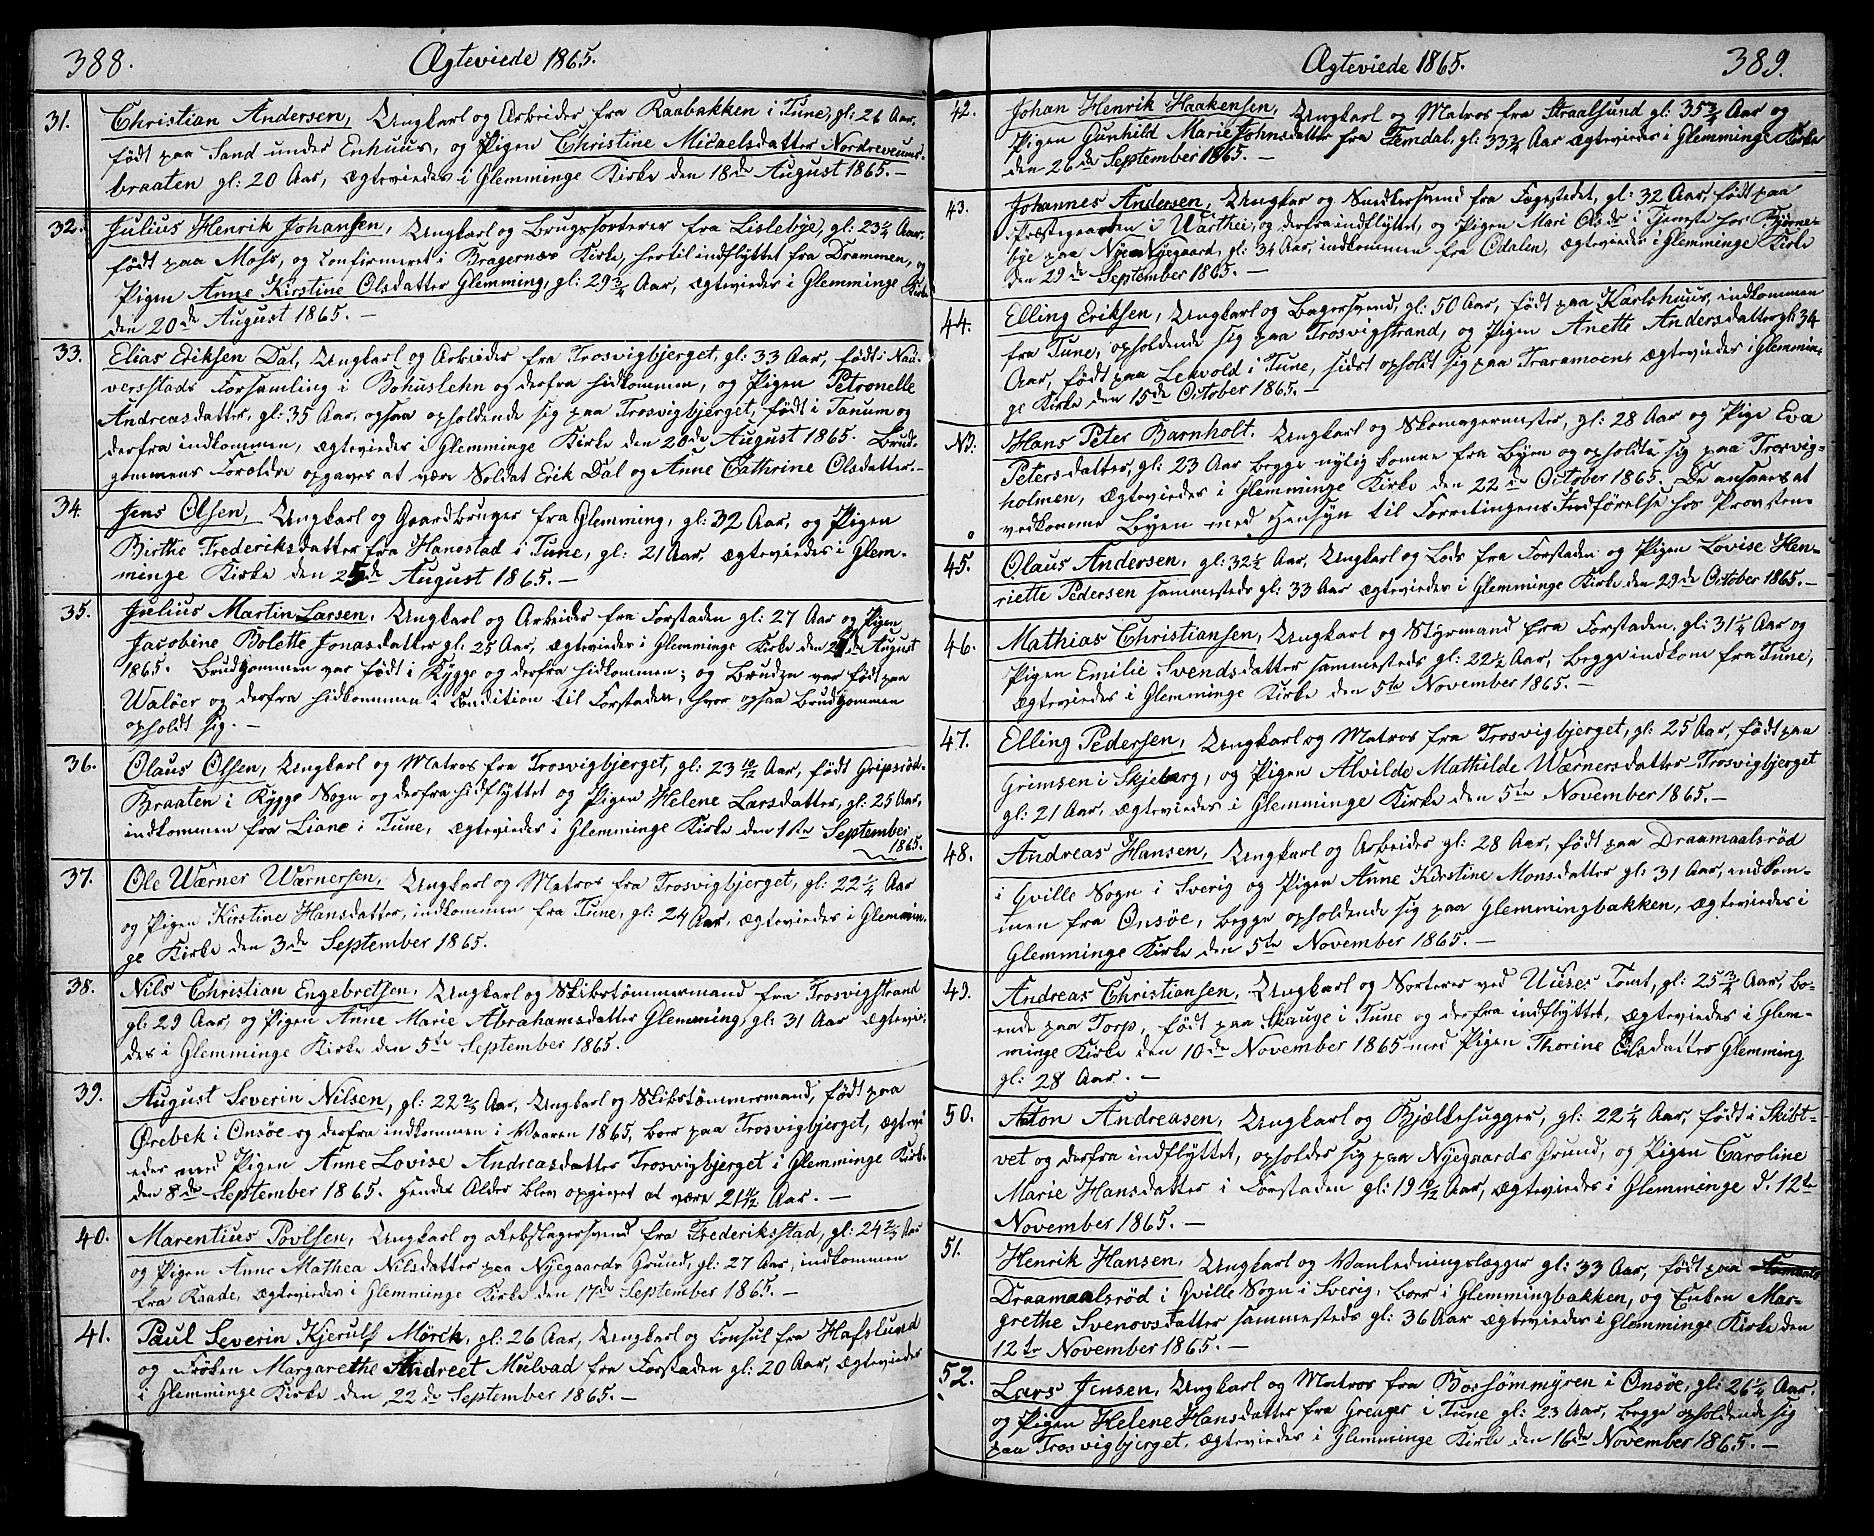 388.
Ægteviede 1865.
31. Christian Andersen, Ungkarl og Arbeider fra Raabakken i Tune, gl: 26 Aar,
født paa Sand under Enhuus, og Pigen Christine Micaelsdatter Nordreveums-
braaten gl: 20 Aar, ægteviedes i Glemminge Kirke den 18de August 1865.-
32. Julius Henrik Johansen, Ungkarl og Brugssorterer fra Lislebye, gl: 23 1/4 Aar,
født paa Moss, og Confirmeret i Bragernæs Kirke, hertil indflyttet fra Drammen, og
Pigen Anne Kirstine Olsdatter Glemming, gl: 29 3/4 Aar, ægteviedes i Glemminge Kirke
den 20de August 1865. -
33. Elias Eriksen Dal, Ungkarl og Arbeider fra Trosvigbjerget, gl: 33 Aar, født i Nau-
verstads Forsamling i Bohuslehn og derfra hidkommen, og Pigen Petronelle
Andreasdatter, gl: 35 Aar, ogsaa opholdende sig paa Trosvigbjerget, født i Tanum og
derfra indkommen, ægteviedes i Glemminge Kirke den 20de August 1865. Brud-
gommens Forældre opgaves at være Soldat Erik Dal og Anne Cathrine Olsdatter.-
34. Jens Olsen, Ungkarl og Gaardbruger fra Glemming, gl: 32 Aar, og Pigen
Birthe Frederiksdatter fra Hanestad i Tune, gl: 21 Aar, ægteviedes i Glem-
minge Kirke den 25de August 1865. -
35. Julius Martin Larsen, Ungkarl og Arbeider fra Forstaden gl: 27 Aar og Pigen
Jacobine Bolette Jonasdatter gl: 25 Aar, ægteviedes i Glemminge Kirke den August
1865. Brudgommen var født i Rygge og derfra hidkommen; og Bruden var født paa
Waløer og derfra hidkommen i Condition til Forstaden, hvor ogsaa Brudgommen
opholdt sig. -
36. Olaus Olsen, Ungkarl og Matros fra Trosvigbjerget, gl: 23 10/12 Aar, født Gripsrød-
Braaten i Rygge Sogn og derfra hidflyttet og Pigen Helene Larsdatter, gl: 25 Aar,
indkommen fra Liane i Tune, ægteviedes i Glemminge Kirke den 1ste September
1865.
37. Ole Wærner Wærnersen, Ungkarl og Matros fra Trosvigbjerget, gl: 22 1/4 Aar
og Pigen Kirstine Hansdatter, indkommen fra Tune, gl: 24 Aar, ægteviedes i Glemmin-
ge Kirke den 3de September 1865.
38. Nils Christian Engebretsen, Ungkarl og Skibstømmermand fra Trosvigstrand
gl: 29 Aar, og Pigen Anne Marie Abrahamsdatter Glemming, gl: 31 Aar ægtevie-
des i Glemminge Kirke den 5te September 1865.
39. August Severin Nilsen, gl: 22 2/3 Aar, Ungkarl og Skibstømmermand, født paa
Ørebek i Onsøe og derfra indkommen i Vaaren 1865, boer paa Trosvigbjerget, ægtevi-
edes med Pigen Anne Lovise Andreasdatter Trosvigbjerget i Glemminge Kirke
den 8de September 1865. Hendes Alder blev opgivet at være 21 Aar. -
40. Marentius Povlsen, Ungkarl og Rebslagersvend fra Frederiksstad, gl: 24 2/3 Aar
og Pigen Anne Mathea Nilsdatter paa Nyegaards Grund, gl: 27 Aar, indkommen
fra Raade, ægteviedes i Glemminge Kirke den 17de September 1865. -
41. Paul Severin Kjerulf Mørch, gl: 26 Aar, Ungkarl og Consul fra Hafslund
og Frøken Margarethe Andreet Mulvad fra Forstaden gl: 20 Aar, ægteviedes
i Glemminge Kirke den 22de September 1865. -
Ægteviede 1865.
389.
42. Johan Henrik Haakensen, Ungkarl og Matros fra Straalsund gl: 35 3/4 Aar og
Pigen Gunhild Marie Johnsdatter fra Temdal, gl: 33 3/4 Aar ægteviedes i Glemminge Kirke
den 26de September 1865. -
43. Johannes Andersen, Ungkar og Snedkersvend fra Fægestedet, gl: 32 Aar, født paa
Prestegaarden i Warthei, og derfra indflyttet, og Pigen Mari i Tjeneste hos Bjørne-
bye paa Nye Nyegaard, gl: 34 Aar, indkommen fra Odalen, ægteviedes i Glemminge Kirke
den 29de September 1865. -
44. Elling Eriksen, Ungkarl og Bagersvend, gl: 50 Aar, født paa Karlshuus, indkommen
fra Tune, opholdende sig paa Trosvigstrand, og Pigen Anette Andersdatter gl: 34
Aar, født paa Lekvold i Tune, sidst opholdt sig paa Traramoens ægteviedes i Glemmin-
ge Kirke den 15de October 1865. -
NB. Hans Peter Barnholt. Ungkarl og Skomagermester, gl: 28 Aar og Pige Eva
Petersdatter, gl: 23 Aar begge nylig komne fra Byen og opholdte sig paa Trosvig-
holmen, ægteviedes i Glemminge Kirke den 22de October 1865. De ansaaes at
vedkomme Byen med Hensyn til Forretningens Indførelse hos Provsten.
45. Olaus Andersen, gl: 32 1/2 Aar, Ungkarl og Lods fra Forstaden og Pigen Lovise Hen-
riette Pedersen sammesteds gl: 33 Aar ægteviedes i Glemminge Kirke den 29de October 1865. -
46. Mathias Christiansen, Ungkarl og Styrmand fra Forstaden, gl: 31 1/4 Aar og
Pigen Emilie Svendsdatter sammesteds gl: 22 1/2 Aar, begge indkom fra Tune,
ægteviedes i Glemminge Kirke den 5te November 1865. -
47. Elling Pedersen, Ungkarl og Matros fra Trosvigbjerget, gl: 25 Aar, født paa
Grimsen i Skjeberg, og Pigen Alvilde Mathilde Wærnersdatter Trosvigbjerget
gl: 21 Aar, ægteviedes i Glemminge Kirke den 5te November 1865. -
48. Andreas Hansen, Ungkarl og Arbeider gl: 28 Aar, født paa Draamaalsrød
i Qville Sogn i Sverig og Pigen Anne Kirstine Monsdatter gl: 31 Aar, indkom-
men fra Onsøe, begge opholdende sig paa Glemmingbakken, ægteviedes i
Glemminge Kirke den 5te November 1865. -
49. Andreas Christiansen, Ungkarl og Sorterer ved Wieses Tomt, gl: 25 3/4 Aar, bo-
ende paa Torp, født paa Skauge i Tune og derfra indflyttet, ægteviedes i Glem-
minge Kirke den 10de November 1865 med Pigen Thorine Olsdatter Glemming
gl: 28 Aar. -
50. Anton Andreasen, Ungkarl og Bjælkehugger, gl: 22 1/2 Aar, født i Skibt-
vet og derfra indflyttet, opholder sig paa Nyegaards Grund, og Pigen Caroline
Marie Hansdatter i Forstaden gl: 19 10/12 Aar, ægteviedes i Glemminge d. 12te
November 1865. -
51. Henrik Hansen, Ungkarl og Vandledningslægger gl: 33 Aar, født paa
Draamaalsrød i Qville Sogn i Sverig, boer i Glemmingbakken, og Enken Mar-
grethe Svenovsdatter sammesteds gl: 36 Aar ægteviedes i Glemminge Kirke den
12te November 1865. -
52. Lars Jensen, Ungkarl og Matros fra Bossømmyren i Onsøe, gl: 26 1/4 Aar,
og Pigen Helene Hansdatter fra Greager i Tune gl: 23 Aar, begge opholdende sig
paa Trosvigbjerget, ægteviedes i Glemminge Kirke den 16de November 1865. -